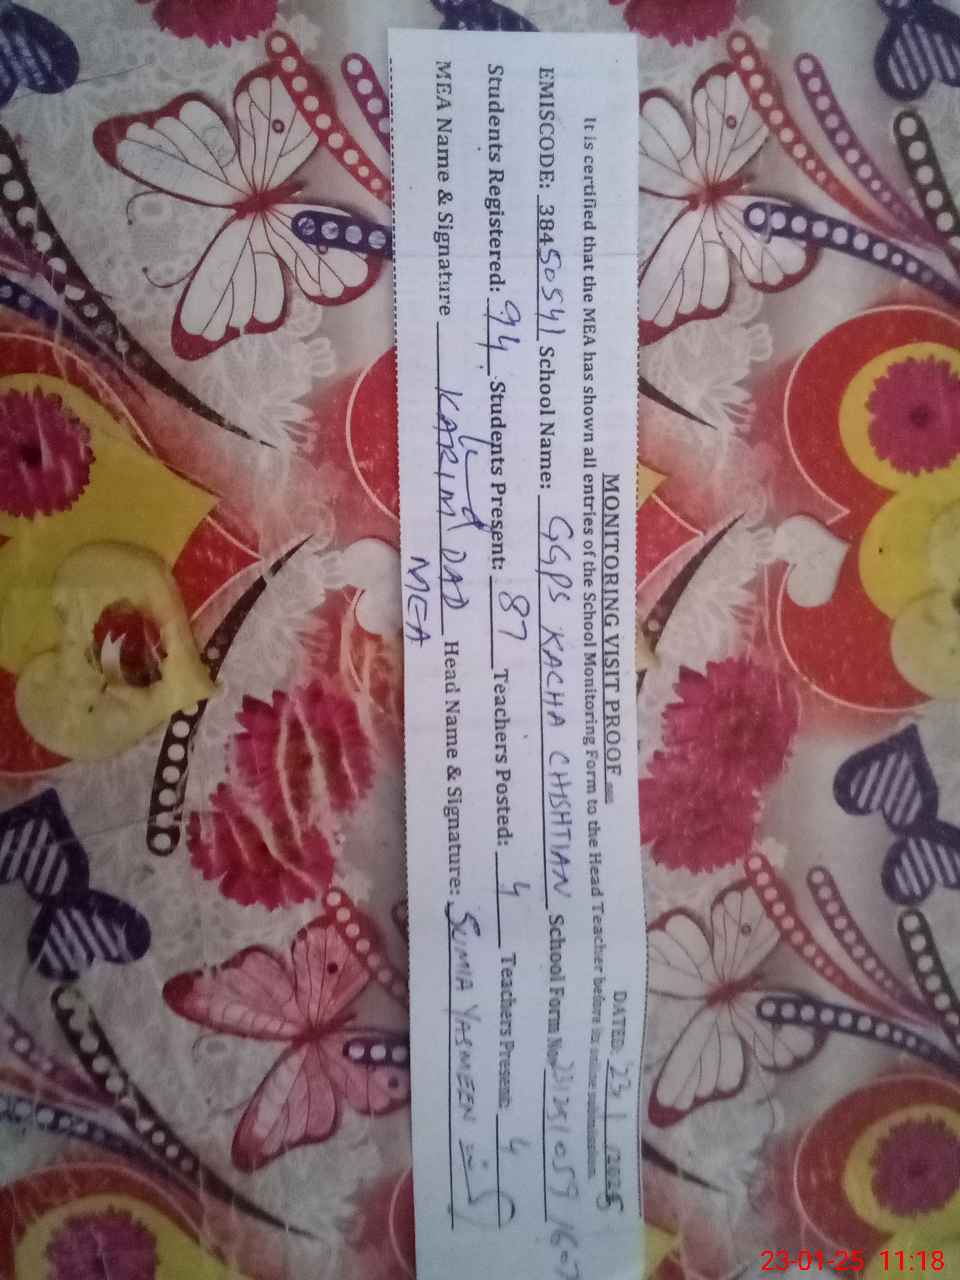 MONITORING VISIT PROOF DATED: 23/1/2025
It is certified that the MEA has shown all entries of the School Monitoring Form to the Head Teacher before its online submission.
EMISCODE: 38450541 School Name: GGPS KACHA CHISHTIAN School Form No
Students Registered: 94 Students Present: 87 Teachers Posted: 4 Teachers Present: 4
MEA Name & Signature KARIM DAD Head Name & Signature: SUMIA YASMEEN
MEA
23-01-25 11:18